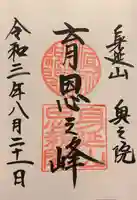 身延山 奥之院
育恩之峰
令和三年八月二十一日